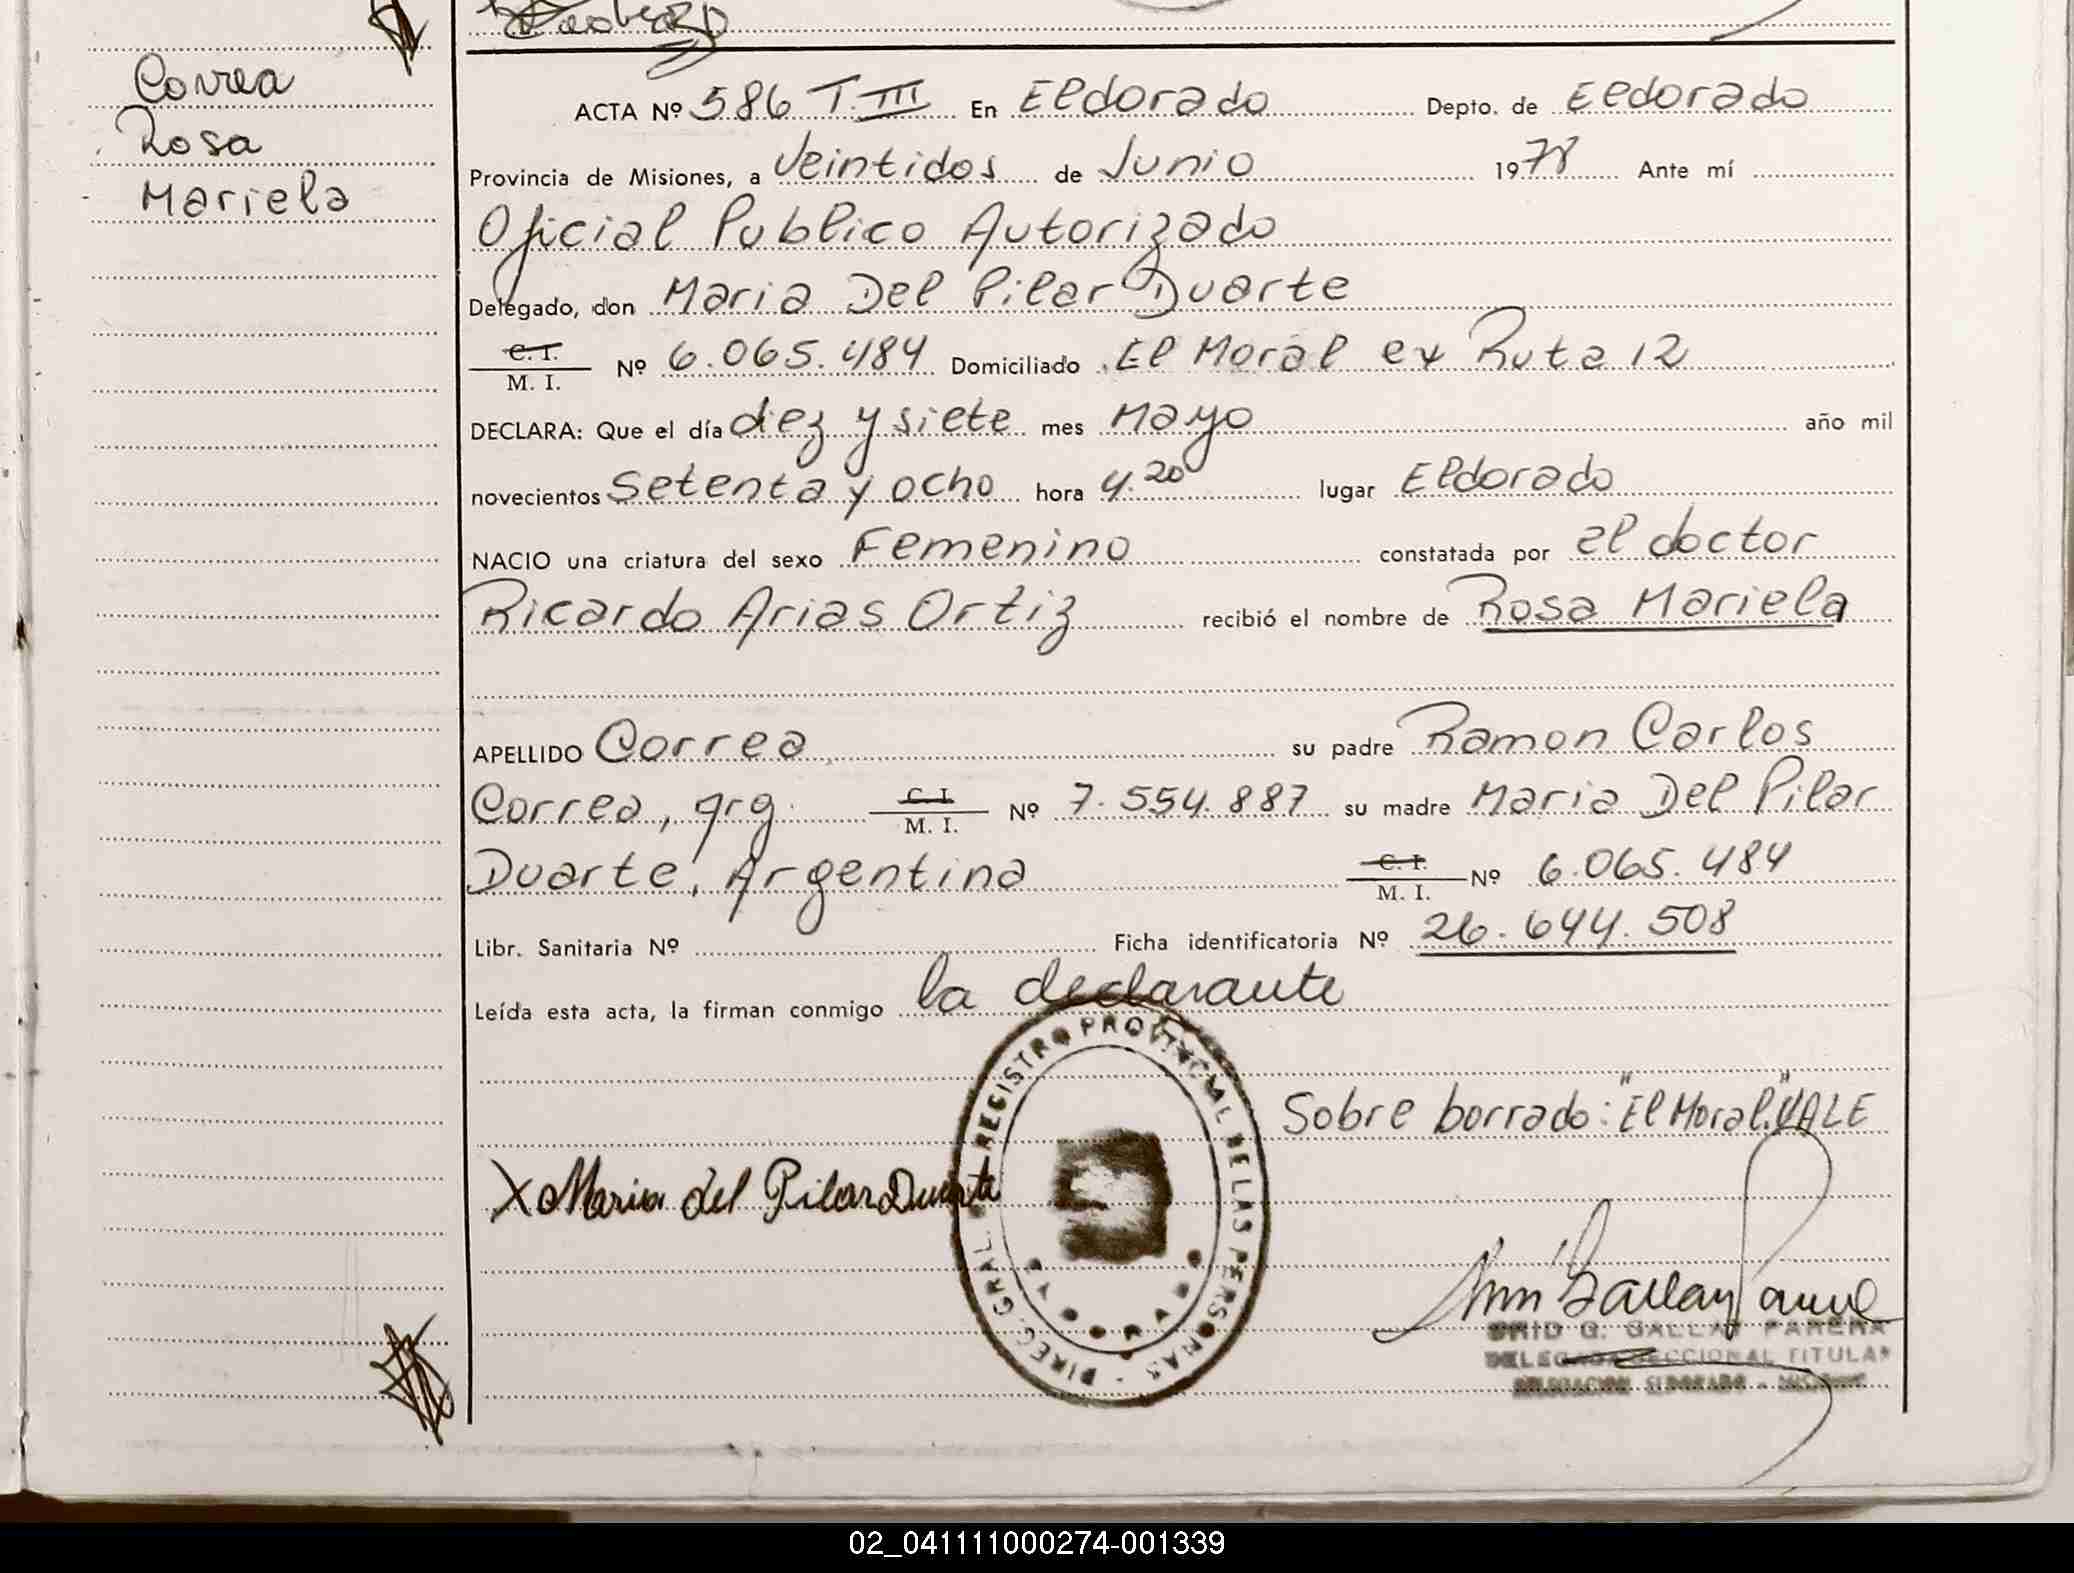 Correa
Rosa
Mariela
ACTA Nº 586 T. III En Eldorado Depto. de Eldorado
Provincia de Misiones, a Veintidos de Junio 1978 Ante mí
Oficial Publico Autorizado
Delegado, don Maria Del Pilar Duarte
C. I. M. I. Nº 6.065.484 Domiciliado El Moral ex Ruta 12
DECLARA: Que el día diez y siete mes Mayo año mil
novecientos Setenta y ocho hora 4.20 lugar Eldorado
NACIO una criatura del sexo Femenino constatada por el doctor
Ricardo Arias Ortiz recibió el nombre de Rosa Mariela
APELLIDO Correa su padre Ramon Carlos
Correa, arg. C. I. M. I. Nº 7.554.887 su madre Maria Del Pilar
Duarte, Argentina C. I. M. I. Nº 6.065.484
Libr. Sanitaria Nº Ficha identificatoria Nº 26.644.508
Leída esta acta, la firman conmigo la declarante
DIREC. GRAL. REGISTRO PROVINCIAL DE LAS PERSONAS
Sobre borrado: "El Moral." VALE
X Maria del Pilar Duarte
G. GALLAY PARERA
DELEGADA SECCIONAL TITULAR
DELEGACION ELDORADO - MISIONES
02_041111000274-001339